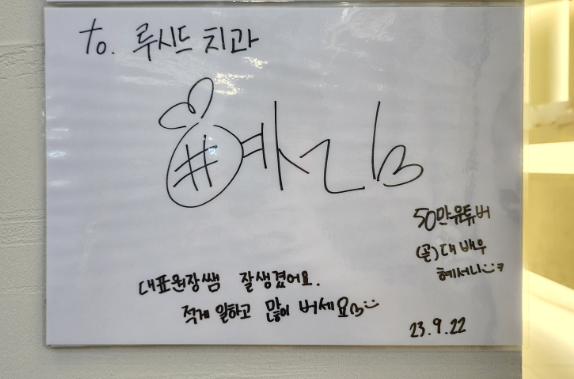 to. 루시드 치과
50만 유튜버
(곧)대 배우
혜서니
대표원장쌤 잘생겼어요.
적게 일하고 많이 버세요
23.9.22